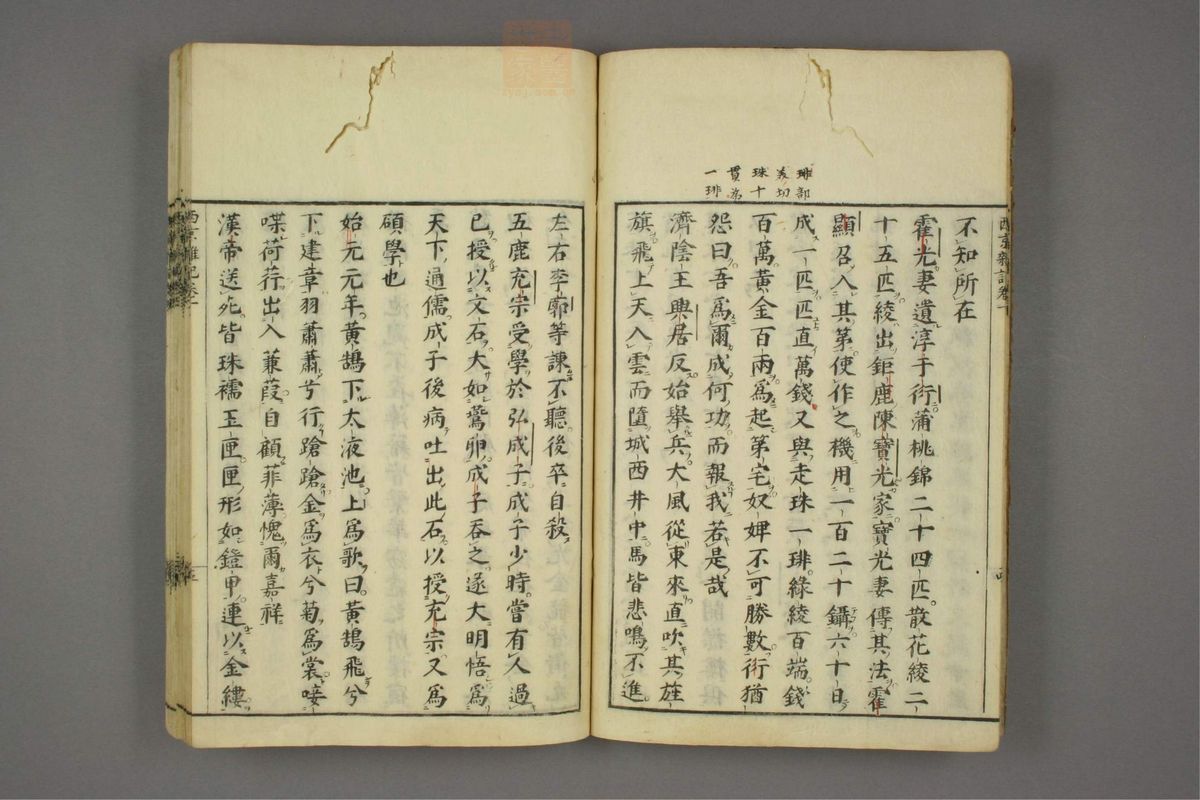 琲部
美切
珠十
貫為
一琲
不知所在
霍光妻遺淳于衍蒲桃錦二十四匹散花綾二
十五匹綾出鉅鹿陳寶光家寶光妻傳其法霍
顯召入其第使作之機用一百二十鑷六十日
成一匹匹直萬錢又與走珠一琲綠綾百端錢
百萬黃金百兩爲起第宅奴婢不可勝數衍猶
怨曰吾爲爾成何功而報我若是哉
濟陰王興居反始舉兵大風從東來直吹其旌
旗飛上天入雲而墮城西井中馬皆悲鳴不進
左右李廓等諫不聽後卒自殺
五鹿充宗受學於弘成子成子少時嘗有人過
已授以文石大如鷰卵成子吞之遂大明悟爲
天下通儒成子後病吐出此石以授充宗又爲
碩學也
始元元年黃鵠下太液池上爲歌曰黃鵠飛兮
下建章羽肅肅兮行蹌蹌金爲衣兮菊爲裳唼
喋荷荇出入蒹葭自顧菲薄愧爾嘉祥
漢帝送死皆珠襦玉匣匣形如鎧甲連以金縷